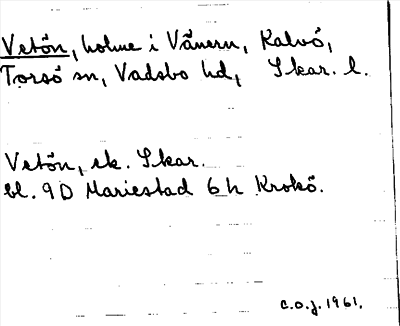 Vetön, holme i Vänern, Kalvö,
Torsö sn, Vadsbo hd, Skar. l.
Vetön, ek. Skar.
bl. 9D Mariestad 6h Krokö.
c.o.j. 1961.